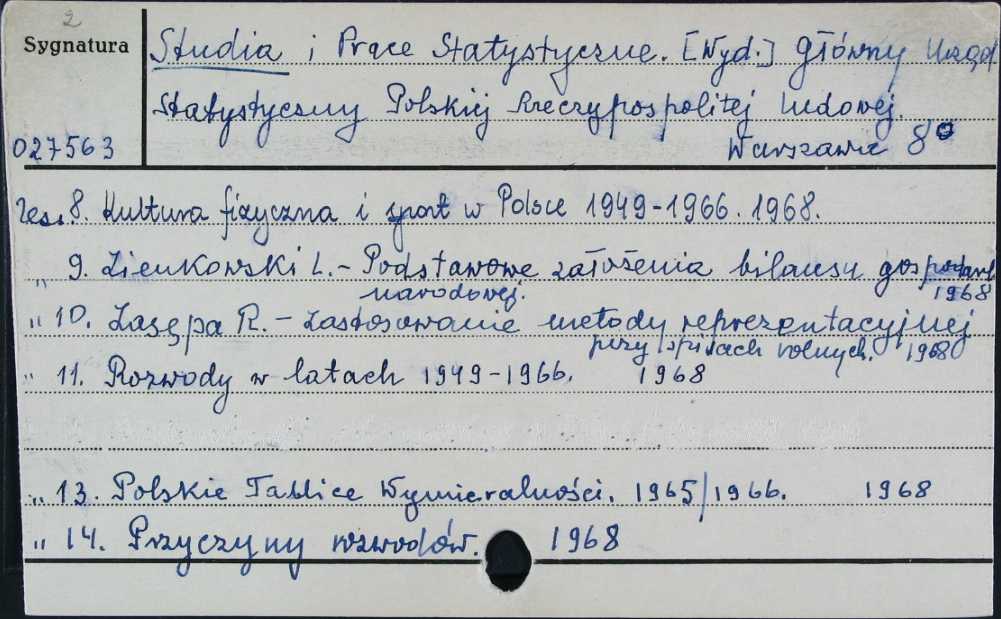 2
Sygnatura
Studia i Prace Statystyczne. [Wyd.] Główny Urząd
Statystyczny Polskiej Rzeczypospolitej Ludowej.
027563 Warszawa 8°
Zes. 8. Kultura fizyczna i sport w Polsce 1949-1966. 1968.
" 9. Zienkowski L. - Podstawowe założenia bilansu gospodark
narodowej. 1968
" 10. Zasępa R. - Zastosowanie metody reprezentacyjnej
przy spisach rolnych. 1968
" 11. Rozwody w latach 1949-1966. 1968
" 13. Polskie Tablice Wymieralności. 1965/1966. 1968
" 14. Przyczyny rozwodów. 1968